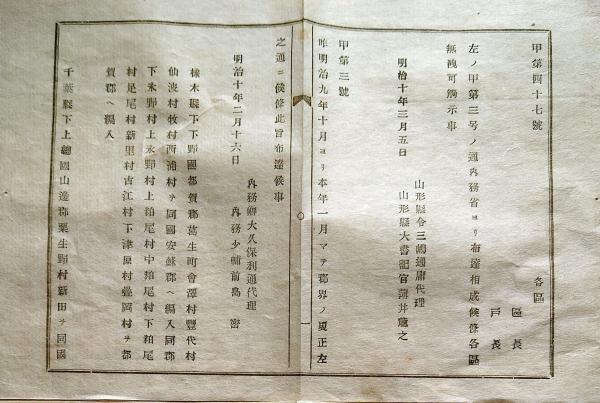 甲第四十七號
各區
區長
戸長
左ノ甲第三号ノ通内務省ヨリ布達相成候條各區
無洩可觸示事
明治十年三月五日
山形縣令三嶋通庸代理
山形縣大書記官薄井龍之
甲第三號
昨明治九年十月ヨリ本年一月マテ郡界ノ更正左
之通ニ候條此旨布達候事
明治十年二月十六日
内務卿大久保利通代理
内務少輔前島密
橡木縣下下野國都賀郡葛生町會澤村豐代村
仙波村牧村西浦村ヲ同國安蘇郡ヘ編入同郡
下永野村上永野村上粕尾村中粕尾村下粕尾
村足尾村新里村古江村下津原村疊岡村ヲ都
賀郡ヘ編入
千葉縣下上總國山邊郡粟生野村新田ヲ同國